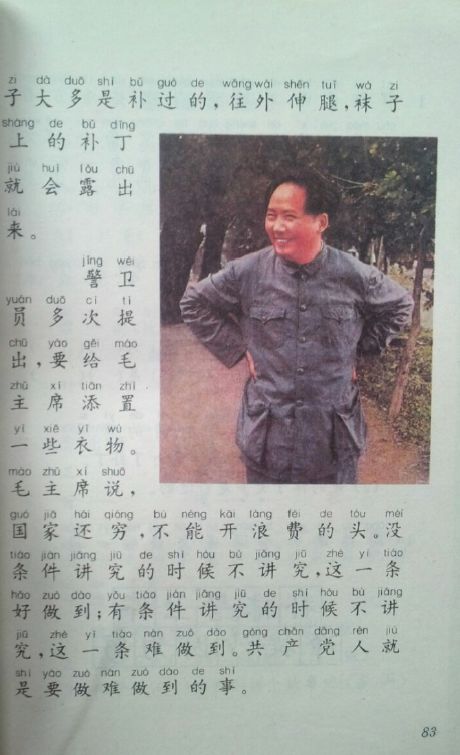 zi dà duō shì bǔ guò de wǎng wài shēn tuǐ wà zi
子大多是补过的,往外伸腿,袜子
shàng de bǔ dīng
上的补丁
jiù huì lòu chū
就会露出
lái
来。
jǐng wèi
警卫
yuán duō cì tí
员多次提
chū yào gěi máo
出,要给毛
zhǔ xí tiān zhì
主席添置
yì xiē yī wù
一些衣物。
máo zhǔ xí shuō
毛主席说,
guó jiā hái qióng bù néng kāi làng fèi de tóu méi
国家还穷,不能开浪费的头。没
tiáo jiàn jiǎng jiū de shí hòu bù jiǎng jiū zhè yì tiáo
条件讲究的时候不讲究,这一条
hǎo zuò dào yǒu tiáo jiàn jiǎng jiū de shí hòu bù jiǎng
好做到;有条件讲究的时候不讲
jiū zhè yì tiáo nán zuò dào gòng chǎn dǎng rén jiù
究,这一条难做到。共产党人就
shì yào zuò nán zuò dào de shì
是要做难做到的事。
83